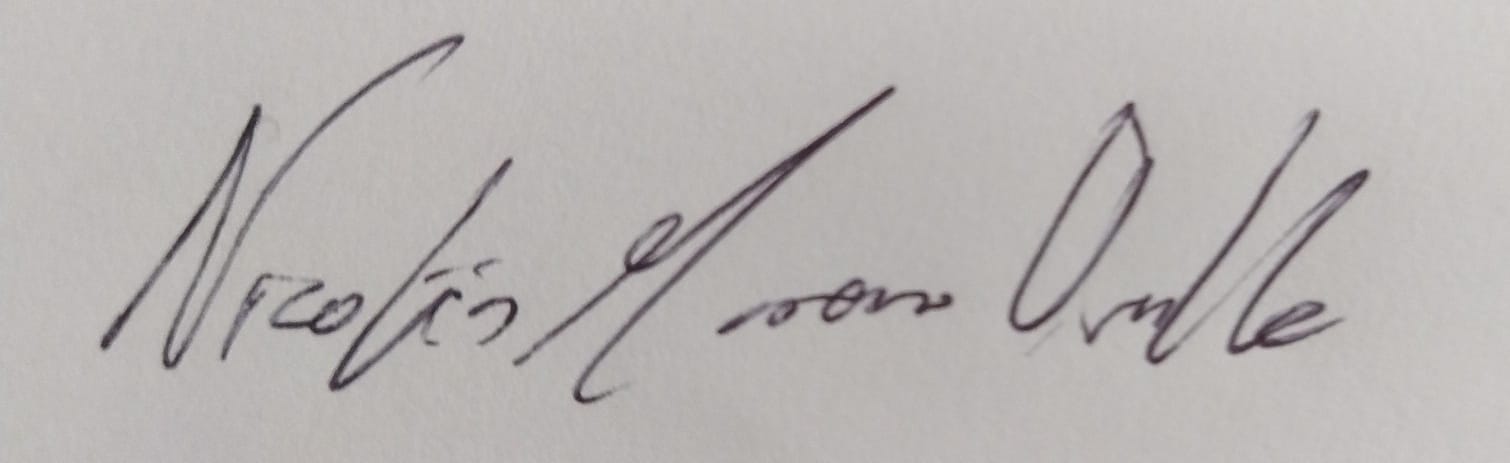 Nicolás Moreno Ovalle